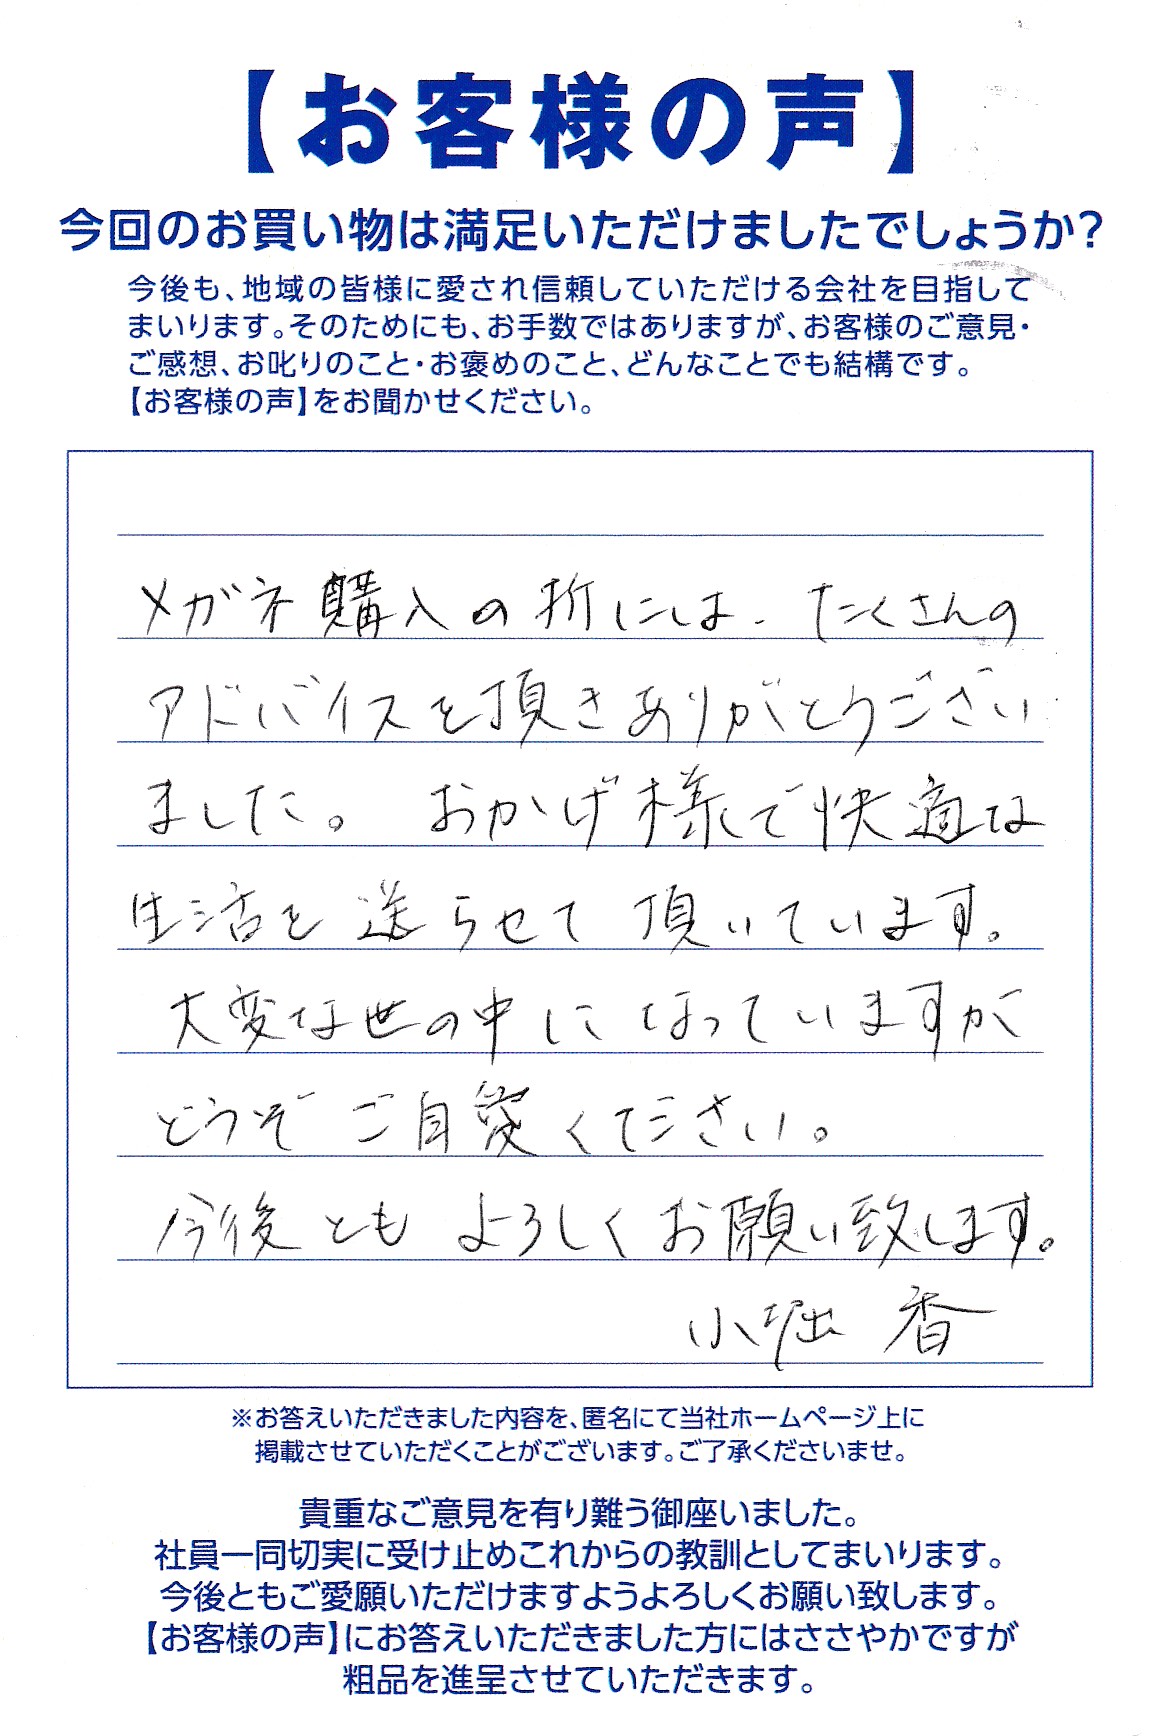 【お客様の声】
今回のお買い物は満足いただけましたでしょうか?
今後も、地域の皆様に愛され信頼していただける会社を目指して
まいります。そのためにも、お手数ではありますが、お客様のご意見・
ご感想、お叱りのこと・お褒めのこと、どんなことでも結構です。
【お客様の声】をお聞かせください。
メガネ購入の折には、たくさんの
アドバイスを頂きありがとうござい
ました。おかげ様で快適な
生活を送らせて頂いています。
大変な世の中になっていますが
どうぞご自愛くて下さい。
今後ともよろしくお願い致します。
小堀 香
※お答えいただきました内容を、匿名にて当社ホームページ上に
掲載させていただくことがございます。ご了承くださいませ。
貴重なご意見を有り難う御座いました。
社員一同切実に受け止めこれからの教訓としてまいります。
今後ともご愛願いただけますようよろしくお願い致します。
【お客様の声】にお答えいただきました方にはささやかですが
粗品を進呈させていただきます。